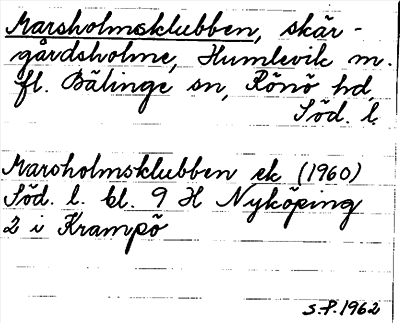 Marsholmsklubben, skär-
gårdsholme, Humlevik m.
fl. Bälinge sn, Rönö hd,
Söd. l.
Marsholmsklubben ek (1960)
Söd. l. bl. 9 H Nyköping
2 i Krampö
S.P. 1962